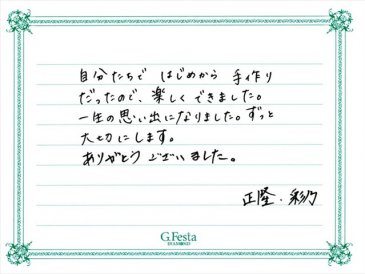 自分たちで はじめから 手作り
だったので、楽しくできました。
一生の思い出になりました。ずっと
大切にします。
ありがとうございました。
正隆・彩乃
G.Festa
DIAMOND